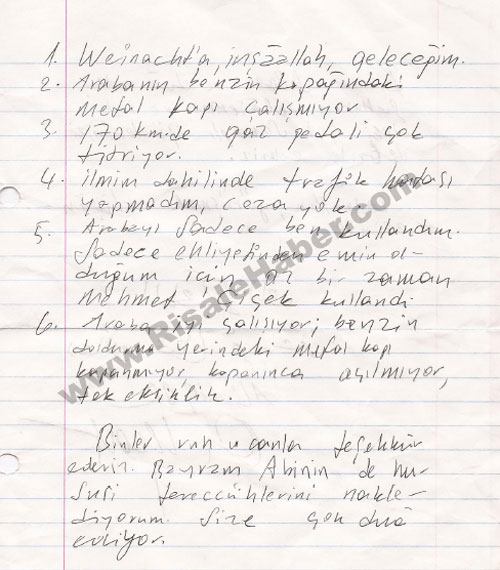 1. Weinacht'a, inşâallah, geleceğim.
2. Arabanın benzin kapağındaki
metal kapı çalışmıyor
3. 170 km.de gaz pedalı çok
titriyor.
4. ilmim dahilinde trafik hatası
yapmadım, ceza yok.
5. Arabayı Sadece ben kullandım.
Sadece ehliyetinden emin ol-
duğum için az bir zaman
Mehmet Çiçek kullandı
6. Araba iyi çalışıyor; benzin
doldurma yerindeki metal kapı
kapanmıyor, kapanınca açılmıyor,
tek eksiklik.
Binler ruh u canla teşekkür
ederim. Bayram Abinin de hu-
susi teveccühlerini nakle-
diyorum. Size çok duâ
ediyor.
www.RisaleHaber.com